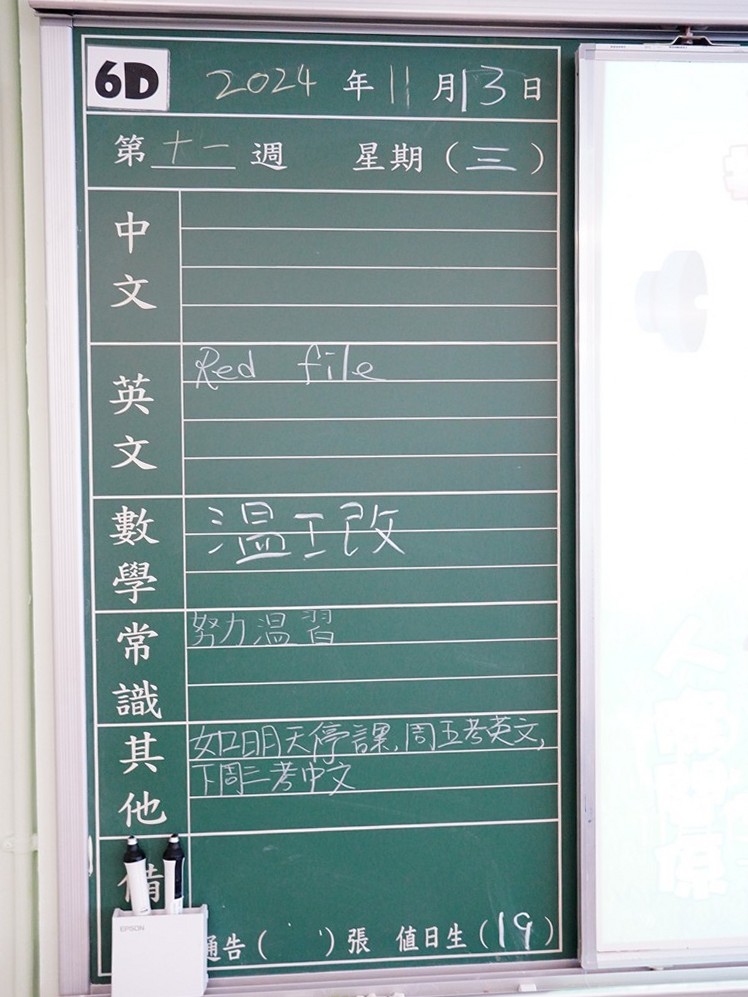 6D 2024 年 11 月 13 日
第 十一 週 星期（三）
中文
英文 Red file
數學 温工改
常識 努力温習
其他 如明天停課，周五考英文，
下周三考中文
備
EPSON
通告（ ）張 值日生（19）